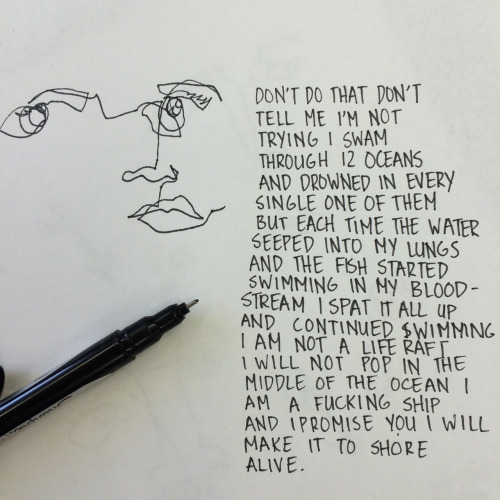 DON'T DO THAT DON'T
TELL ME I'M NOT
TRYING I SWAM
THROUGH 12 OCEANS
AND DROWNED IN EVERY
SINGLE ONE OF THEM
BUT EACH TIME THE WATER
SEEPED INTO MY LUNGS
AND THE FISH STARTED
SWIMMING IN MY BLOOD-
STREAM I SPAT IT ALL UP
AND CONTINUED SWIMMING
I AM NOT A LIFE RAFT
I WILL NOT POP IN THE
MIDDLE OF THE OCEAN I
AM A FUCKING SHIP
AND I PROMISE YOU I WILL
MAKE IT TO SHORE
ALIVE.